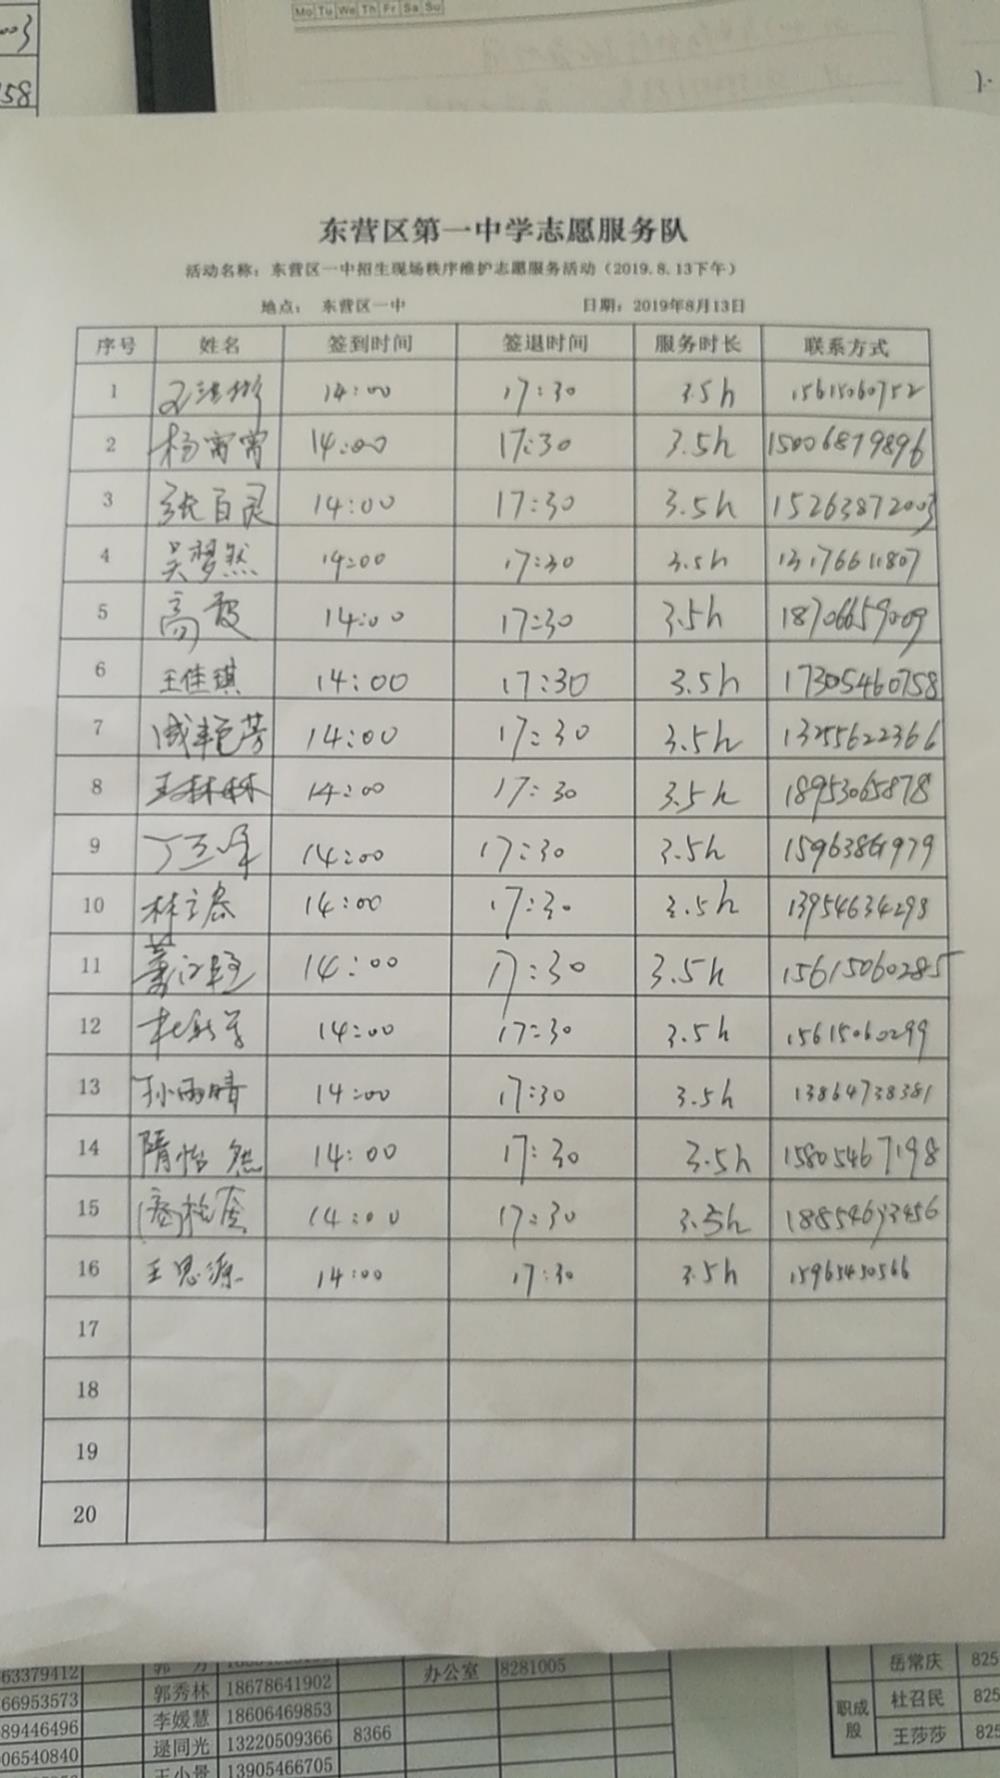 Mo Tu We Th Fr Sa Su
东营区第一中学志愿服务队
活动名称：东营区一中招生现场秩序维护志愿服务活动（2019.8.13下午）
地点： 东营区一中 日期：2019年8月13日
序号 姓名 签到时间 签退时间 服务时长 联系方式
1 14:00 17:30 3.5h 15615060752
2 杨霄霄 14:00 17:30 3.5h 15006879896
3 张百灵 14:00 17:30 3.5h 15263872003
4 吴梦然 14:00 17:30 3.5h 13176611807
5 高 14:00 17:30 3.5h 18706659009
6 王佳琪 14:00 17:30 3.5h 17305460758
7 14:00 17:30 3.5h 13255622366
8 王林林 14:00 17:30 3.5h 18953065878
9 14:00 17:30 3.5h
10 林立春 14:00 17:30 3.5h 13954634298
11 14:00 17:30 3.5h 15615060285
12 14:00 17:30 3.5h 15615060299
13 孙雨晴 14:00 17:30 3.5h 13864738381
14 隋怡然 14:00 17:30 3.5h 15805467198
15 14:00 17:30 3.5h
16 王思源 14:00 17:30 3.5h 15965430566
17
18
19
20
63379412 办公室 8281005
66953573 郭秀林 18678641902
89446496 李媛慧 18606469853
06540840 逯同光 13220509366 8366
王小景 13905466705
岳常庆 825
职成股 杜召民 825
王莎莎 825